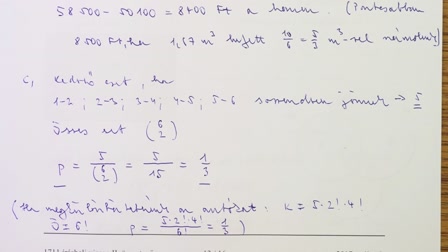 58 500 - 50 100 = 8400 Ft a haszon. (Pontosabban
8500 Ft, ha 1,67 m³ helyett 10/6 = 5/3 m³-rel számolunk)
c, Kedvező eset, ha
1-2 ; 2-3 ; 3-4 ; 4-5 ; 5-6 sorrendben jönnek → 5
Összes eset (6 2)
P = 5/(6 2) = 5/15 = 1/3
(Ha megkülönböztetnénk az K = 5·2!·4!
Ö = 6! P = 5·2!·4!/6! = 1/3 )